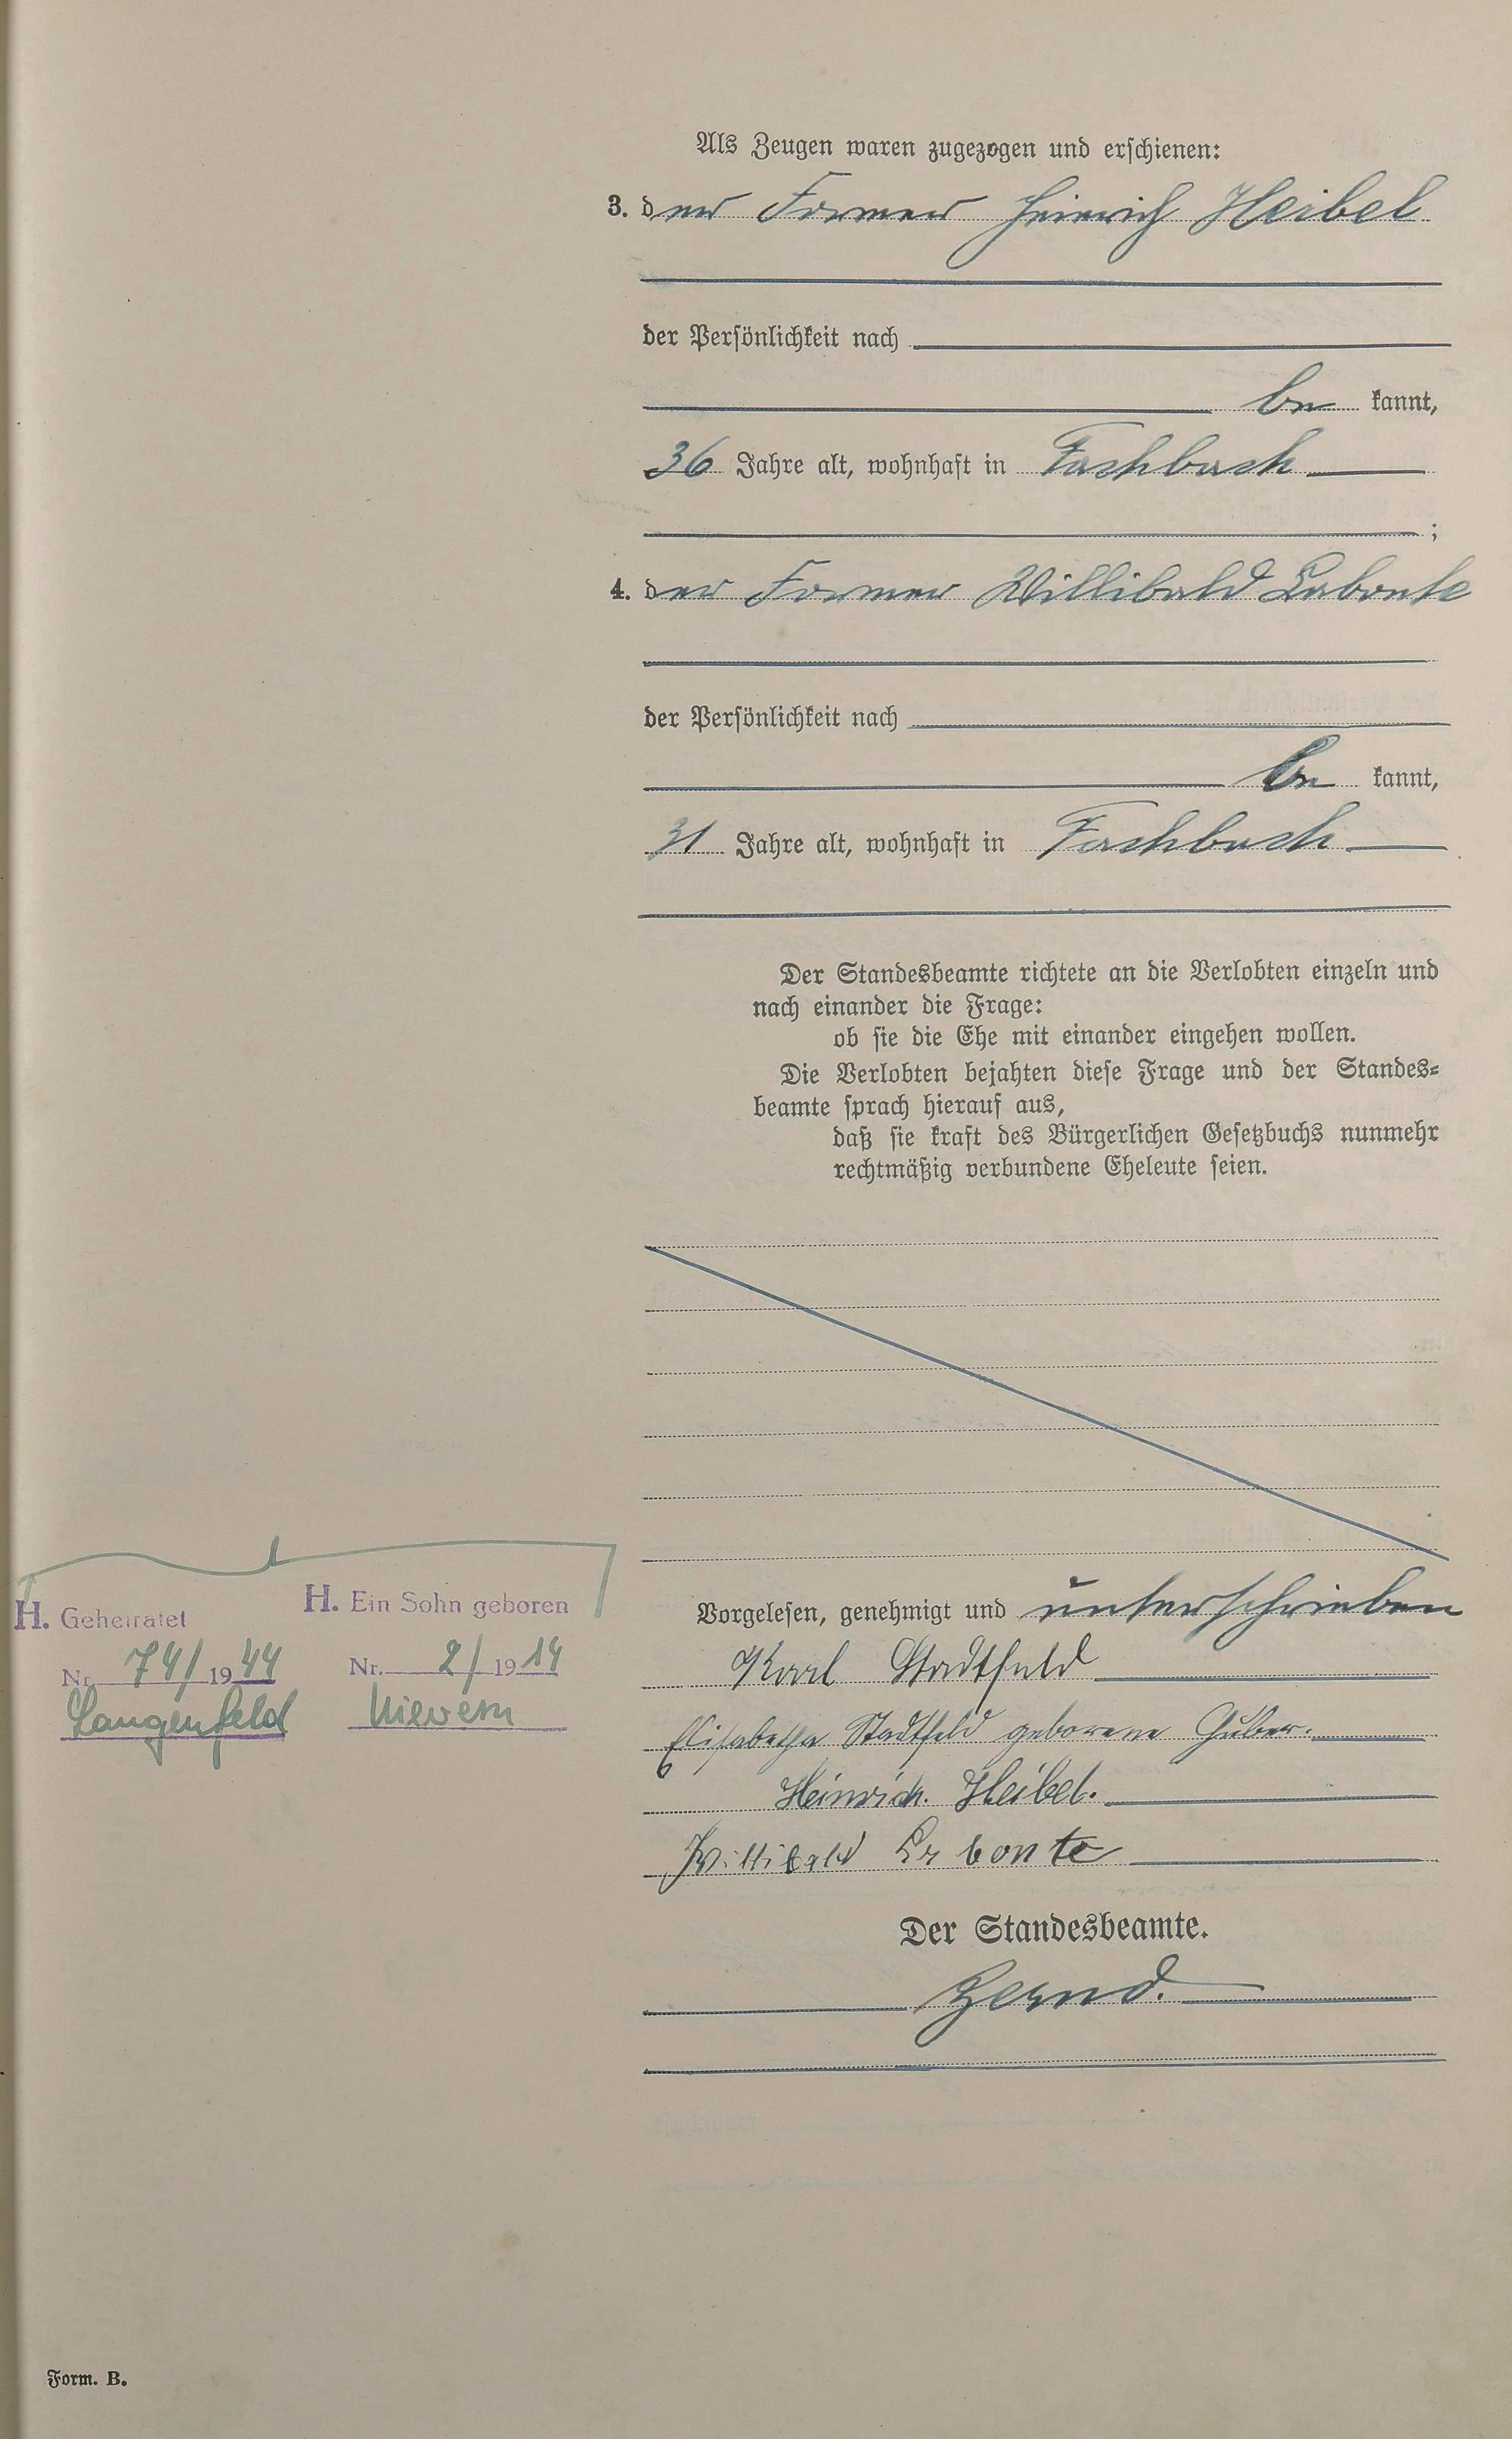 Als Zeugen waren zugezogen und erschienen:
3. der Former Heinrich Heibel
der Persönlichkeit nach
be kannt,
36 Jahre alt, wohnhaft in Fachbach
;
4. der Former Willibald Labonte
der Persönlichkeit nach
be kannt,
31 Jahre alt, wohnhaft in Fachbach
Der Standesbeamte richtete an die Verlobten einzeln und
nach einander die Frage:
ob sie die Ehe mit einander eingehen wollen.
Die Verlobten bejahten diese Frage und der Standes-
beamte sprach hierauf aus,
daß sie kraft des Bürgerlichen Gesetzbuchs nunmehr
rechtmäßig verbundene Eheleute seien.
Vorgelesen, genehmigt und unterschrieben
Karl Stadtfeld
Elisabetha Stadtfeld geborene Huber.
Heinrich Heibel.
Willibald Labonte
Der Standesbeamte.
Zernd.
H. Geheiratet
Nr. 74/1944
Langenfeld
H. Ein Sohn geboren
Nr. 2/1914
Nievern
Form. B.